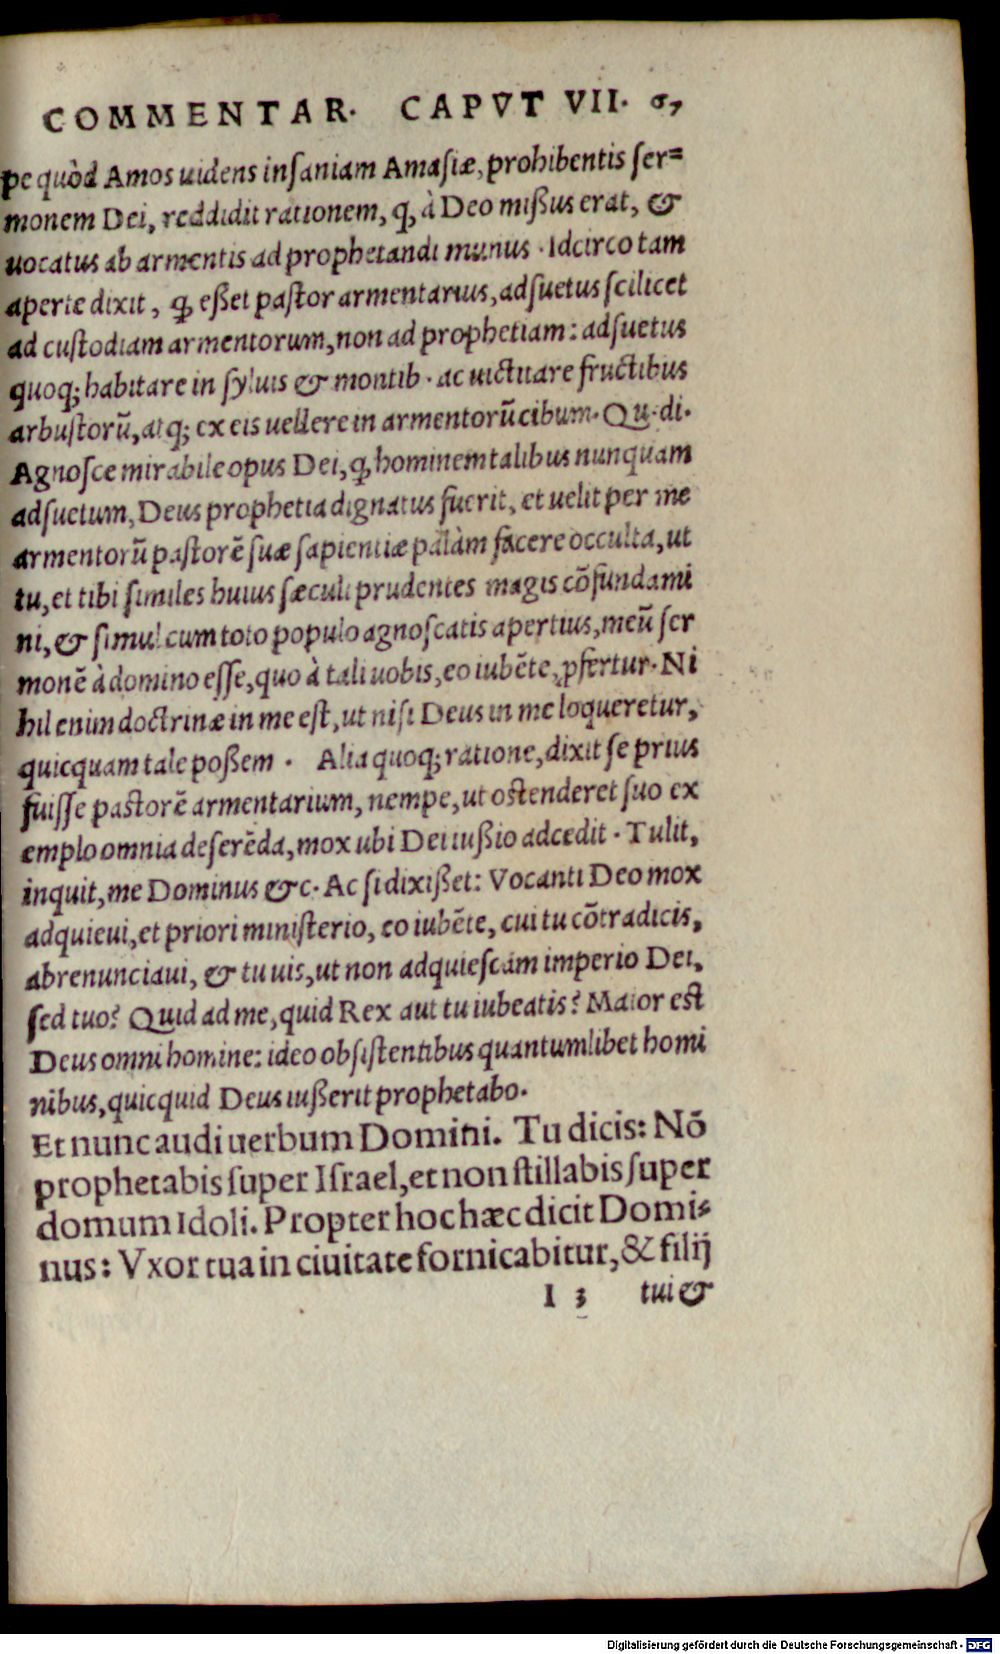 COMMENTAR. CAPVT VII. 67
pe quòd Amos uidens inſaniam Amaſiæ, prohibentis ſer=
monem Dei, reddidit rationem, ꝙ, à Deo mißus erat, &
uocatus ab armentis ad prophetandi munus. Idcirco tam
aperte dixit, ꝙ eßet paſtor armentarius, adſuetus ſcilicet
ad cuſtodiam armentorum, non ad prophetiam: adſuetus
quoq; habitare in ſyluis & montib. ac uictitare fructibus
arbuſtorũ, atq; ex eis uellere in armentorũ cibum. Qu. di.
Agnoſce mirabile opus Dei, ꝙ hominem talibus nunquam
adſuetum, Deus prophetia dignatus fuerit, et uelit per me
armentorũ paſtorẽ ſuæ ſapientiæ palàm facere occulta, ut
tu, et tibi ſimiles huius ſæculi prudentes magis cõfundami
ni, & ſimul cum toto populo agnoſcatis apertius, meũ ſer
monẽ à domino eſſe, quo à tali uobis, eo iubẽte, ꝓfertur. Ni
hil enim doctrinæ in me eſt, ut niſi Deus in me loqueretur,
quicquam tale poßem. Alia quoq; ratione, dixit ſe prius
fuiſſe paſtorẽ armentarium, nempe, ut oſtenderet ſuo ex
emplo omnia deſerẽda, mox ubi Dei iußio adcedit. Tulit,
inquit, me Dominus &c. Ac ſi dixißet: Vocanti Deo mox
adquieui, et priori miniſterio, eo iubẽte, cui tu cõtradicis,
abrenunciaui, & tu uis, ut non adquieſcam imperio Dei,
ſed tuo? Quid ad me, quid Rex aut tu iubeatis? Maior eſt
Deus omni homine: ideo obſiſtentibus quantumlibet homi
nibus, quicquid Deus iußerit prophetabo.
Et nunc audi uerbum Domini. Tu dicis: Nõ
prophetabis ſuper Iſrael, et non ſtillabis ſuper
domum Idoli. Propter hoc hæc dicit Domi=
nus: Vxor tua in ciuitate fornicabitur, & filij
I 3 tui &
Digitalisierung gefördert durch die Deutsche Forschungsgemeinschaft - DFG